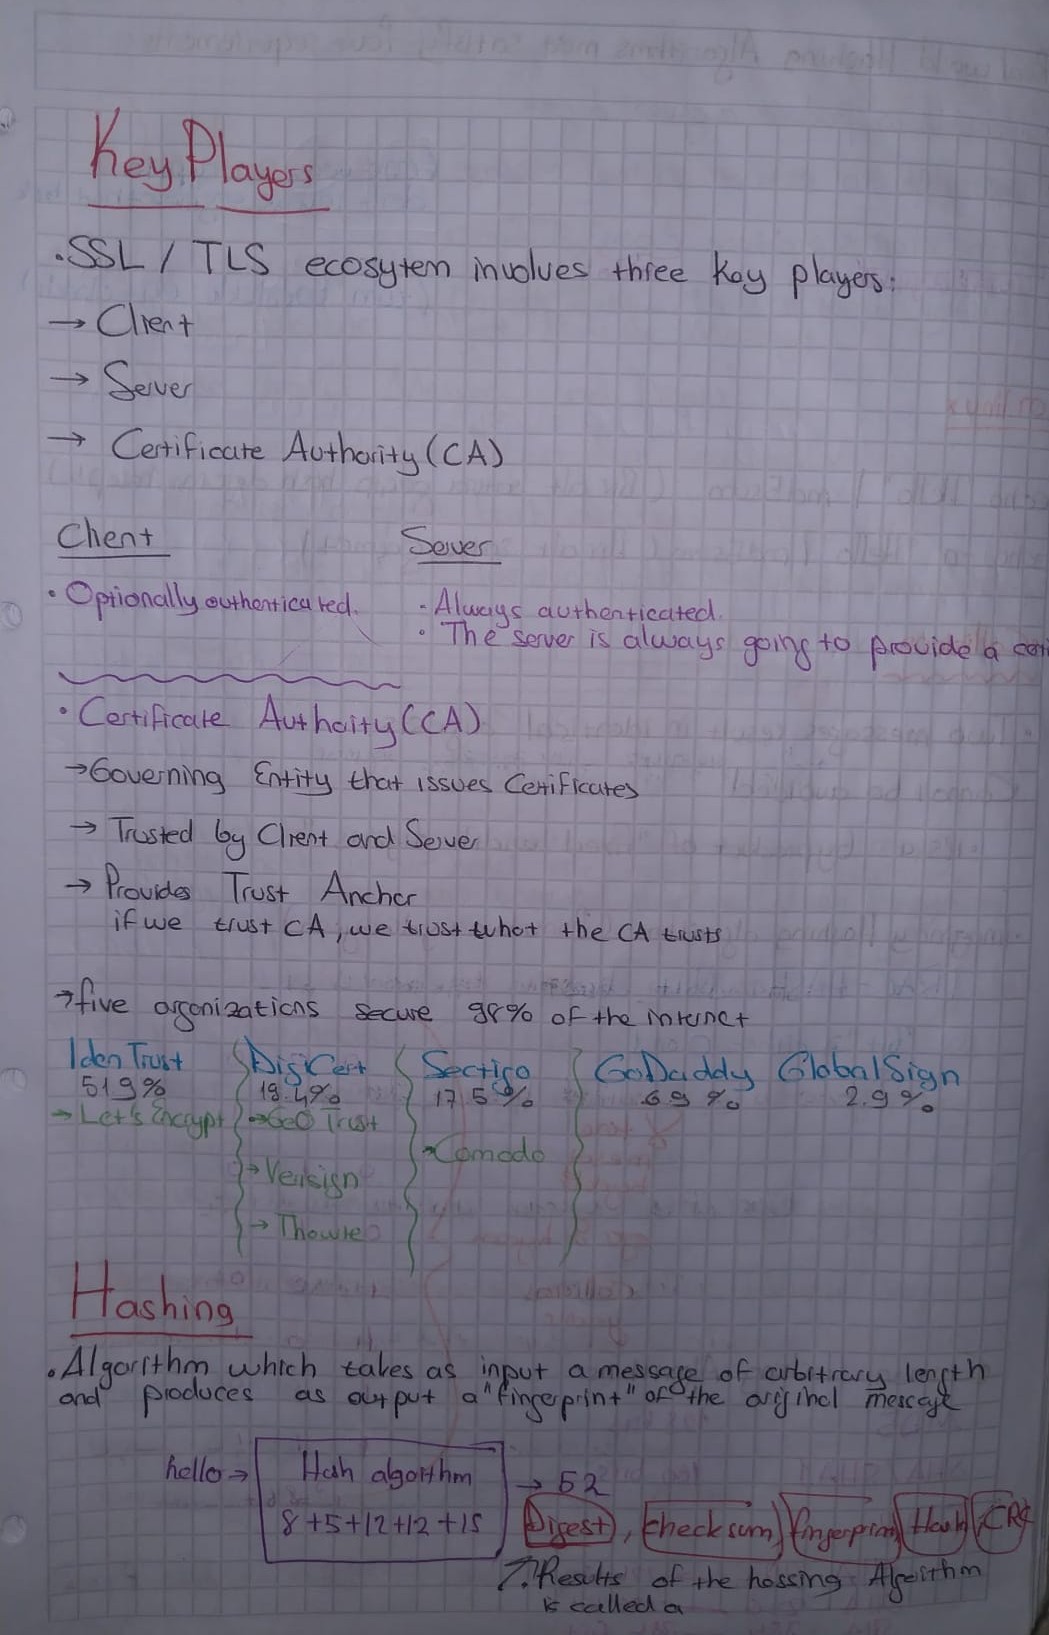 Key Players
• SSL / TLS ecosytem involves three Key players:
→ Client
→ Server
→ Certificate Authority (CA)
Client Server
• Optionally authenticated. - Always authenticated.
• The server is always going to provide a
• Certificate Authoity (CA)
→ Governing Entity that issues Certificates
→ Trusted by Client and Server
→ Provides Trust Anchor
if we trust CA, we trust what the CA trusts
→ five organizations secure 98% of the internet
IdenTrust DigiCert Sectigo GoDaddy GlobalSign
51.9% 19.4% 17.5% 6.9% 2.9%
→ Let's Encrypt → Geo Trust
→ Comodo
→ Verisign
→ Thowte
Hashing
• Algorithm which takes as input a message of arbitrary length
and produces as output a "fingerprint" of the original message
hello → Hash algorithm → 52
8+5+12+12+15 Digest, checksum, fingerprint, Hash, CRC
↗. Results of the hassing Algorithm
is called a